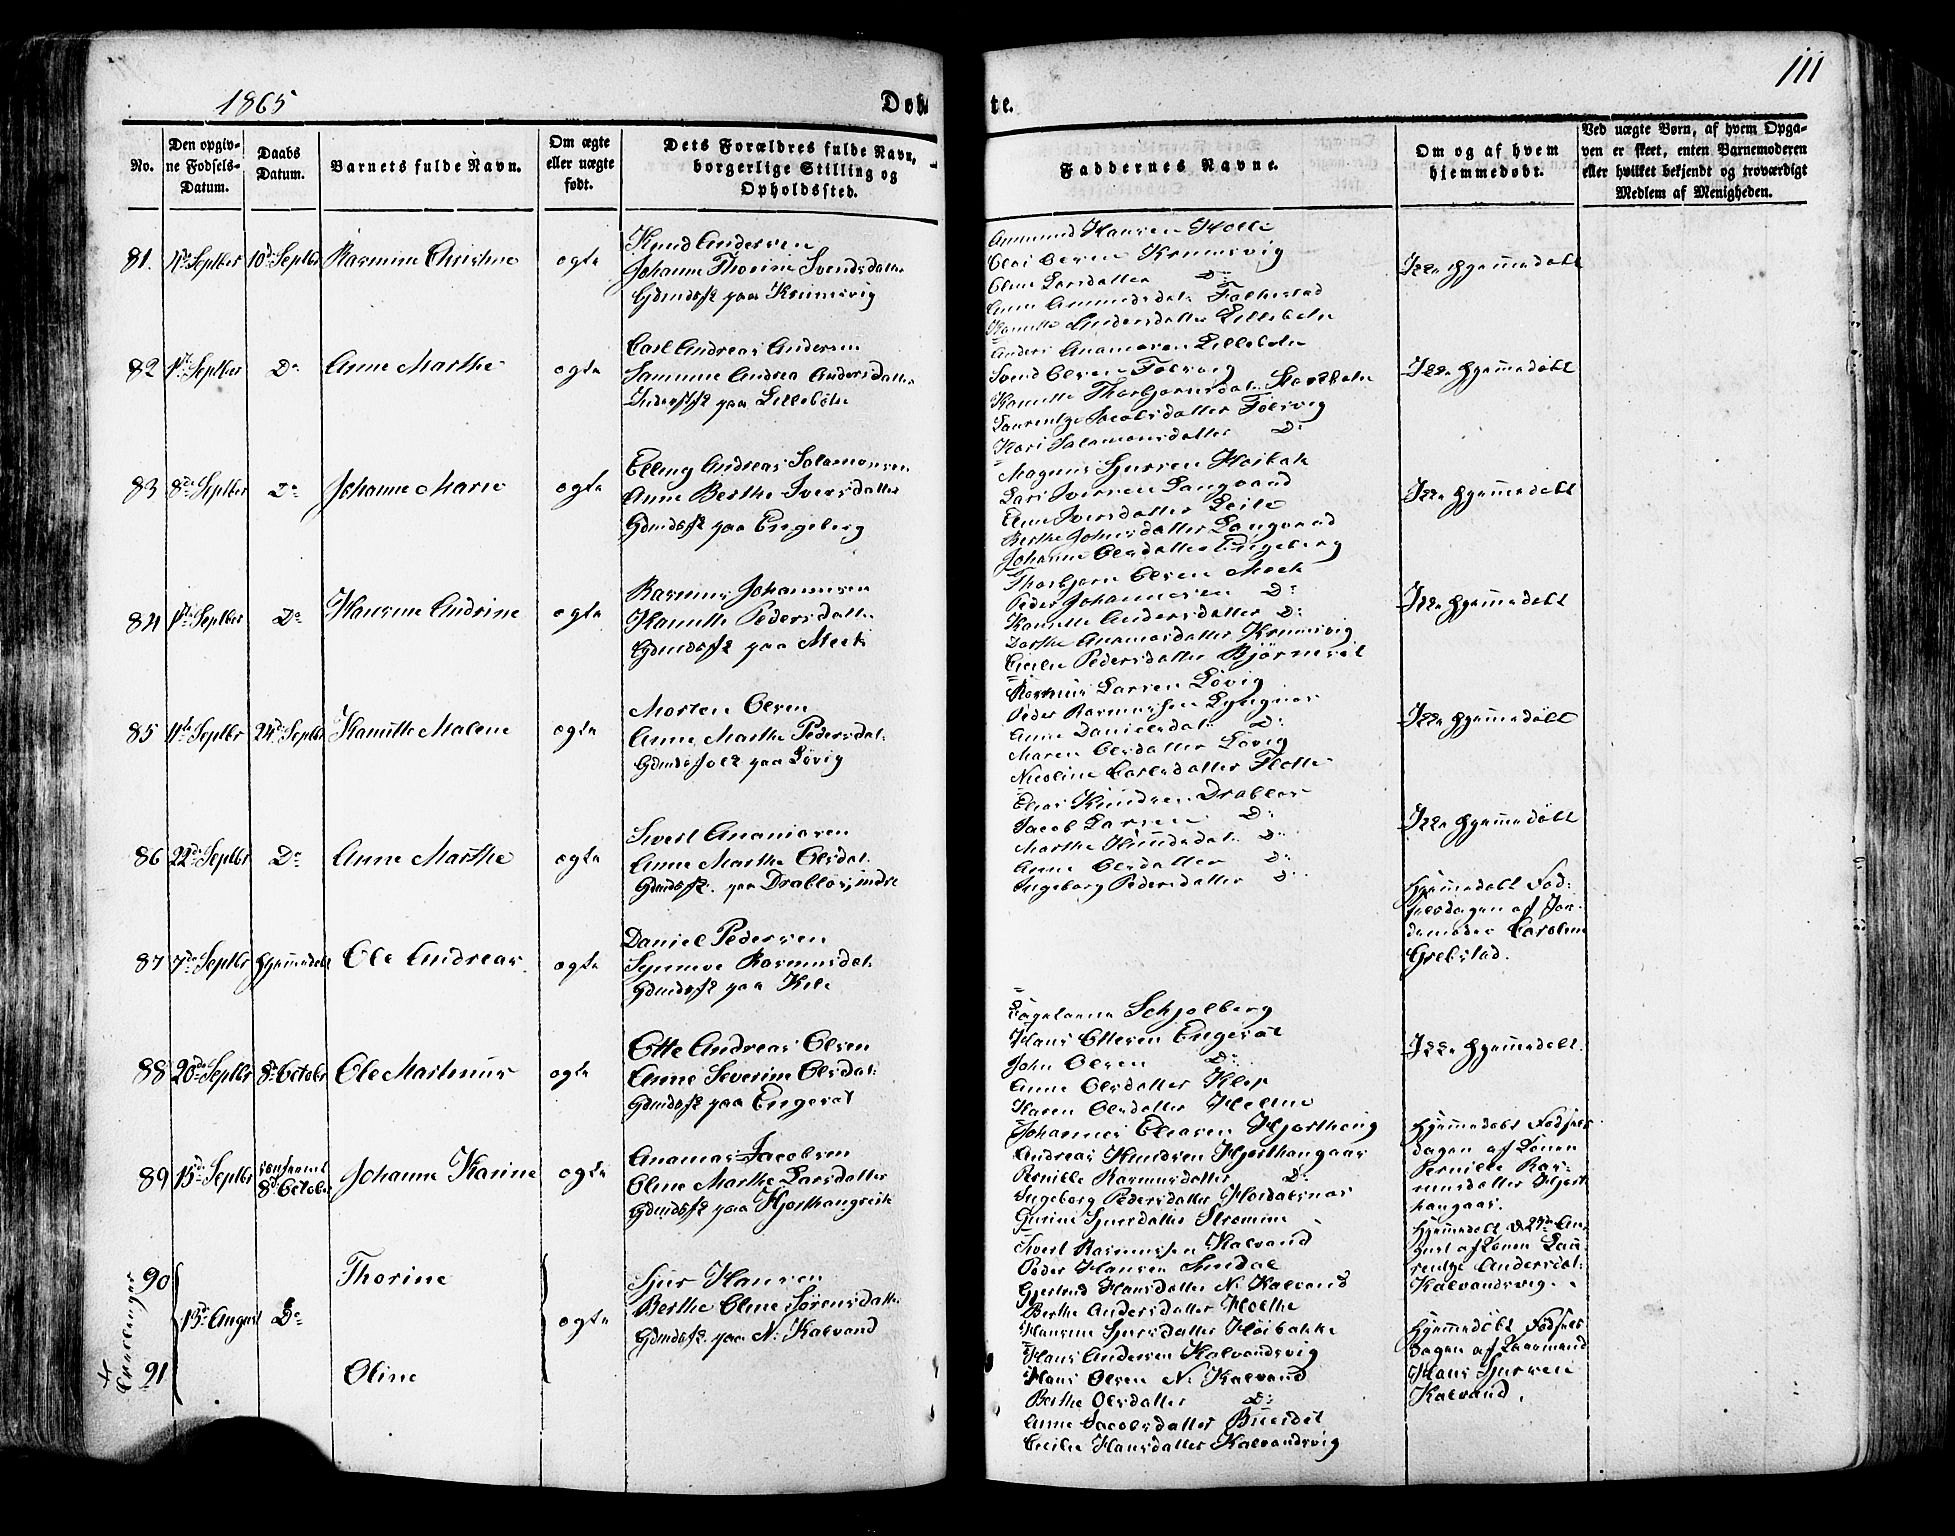 1865
Døb te.
111
No.
Den opgivne Fødsels-Datum.
Daabs Datum.
Barnets fulde Navn.
Om ægte eller uægte født.
Dets Forældres fulde Navn, borgerlige Stilling og Opholdssted.
Faddernes Navne.
Om og af hvem hjemmedøbt.
Ved uægte Børn, af hvem Opgaven er skeet, enten Barnemoderen eller hvilket bekjendt og troværdigt Medlem af Menigheden.
81.
Septbr
10de Septbr
Rasmine Christine
ægte
Knud Andersen
Johanne Thorine Svendsdatter
Gdmdsfk paa Krumsvig
Amund Hansen Holle
Elias Olsen Krumsvig
Oline Larsdatter D:
Anne Amundsdat. Folkestad
Hanitte Andersdatter Lillebøle
Ikke hjemmedøbt
82
Septbr
Do
Anne Marthe
ægte
Carl Andreas Andersen
Samine Andrea Andersdatter
Inderstfk paa Lillebøle
Anders Ananiasen Lillebøle
Svend Olsen Folsvig
Hanitte Thorbjørnsdat. Storebøle
Laurentze Jacobsdatter Folsvig
Kari Salamonsdatter D:
Ikke hjemmedøbt
83
8de Septbr
Do
Johanne Marie
ægte
Elling Andreas Salamonsen
Anne Berthe Iversdatter
Gdmdsfk paa Engeberg
Magnus Sjursen Hoibak
Lars Iversen Langvand
Eline Iversdatter Leite
Berthe Johnsdatter Langvand
Johanne Olsdatter Engeberg
Ikke hjemmedøbt
84
Septbr
Do
Hansine Andrine
ægte
Rasmus Johannesen
Hanitte Pedersdatter
Gdmdsfk paa Meek
Thorbjørn Olsen Meek
Peder Johannesen D:
Hanitte Andersdatter D:
Dorthe Ananiasdatter Krumsvig
Cecilie Pedersdatter Bjørneset
Ikke hjemmedøbt
85
Septbr
24de Septbr
Hanitte Malene
ægte
Morten Olsen
Anne Marthe Pedersdat.
Gdmdsfolk paa Løvig
Rasmus Larsen Løvig
Peder Rasmussen Lyngnes
Anne Danielsdat. D:
Maren Olsdatter Løvig
Nicoline Carlsdatter Flotte
Ikke hjemmedøbt
86
22de Septbr
Do
Anne Marthe
ægte
Sivert Ananiasen
Anne Marthe Olsdat.
Gdmdsfk. paa Drabløs, indre
Elias Knudsen Drabløs
Jacob Larsen D:
Marthe Knudsdat. D:
Anne Olsdatter D:
Ingeborg Pedersdatter D:
Ikke hjemmedøbt
87
7de Septbr
hjemmedøbt
Ole Andreas
ægte
Daniel Pedersen
Synneve Rasmusdat.
Gdmdsfk paa Kile
hjemmedøbt Fød-
selsdagen af Jor-
demoder Caroline
Grebstad.
88
20de Septbr
8de October
Ole Martinus
ægte
Otte Andreas Olsen
Anne Severine Olsdat.
Gdmdsfk paa Engeset
Schjolberg
Hans Ottesen Engeset
John Olsen D:
Anne Olsdatter Klep
Karen Olsdatter Helme
Ikke hjemmedøbt.
89
15de Septbr
8de October
Johanne Karine
ægte
Ananias Jacobsen
Oline Marthe Larsdatter
Gdmdsfk paa Hjorthangreit
Johannes Eliasen Hjorthaug
Andreas Knudsen Hjorthangaas
Pernille Rasmusdatter D:
Ingeborg Pedersdatter Hoidalsnes
Gurine Sjursdatter Strømme
hjemmedøbt Fødsels
dagen af Konen
Pernille Ras-
musdatter Hjort
hangaas.
90
Tvillinger
13de August
Do
Thorine
ægte
Sjur Hansen
Berthe Oline Sørensdatter
Gdmdsfk. paa N. Kalvand
Sivert Rasmussen Kalvand
Peder Hansen Amdal
Gjertrud Hansdatter N. Kalvand
Berthe Andersdatter Holthe
Hansine Sjursdatter Høibakke
hjemmedøbt d. 29de Au-
gust af Konen Lau-
rentze Andersdat.
Kalvandsvig.
91
Oline
Hans Andersen Kalvandsvig
Hans Olsen N. Kalvand
Berthe Olsdatter D:
Anne Jacobsdatter Buerdet
Cecilie Hansdatter Kalvandsvig
hjemmedøbt Fødsels
dagen af Gaardmand
Hans Sjursen
Kalvand.